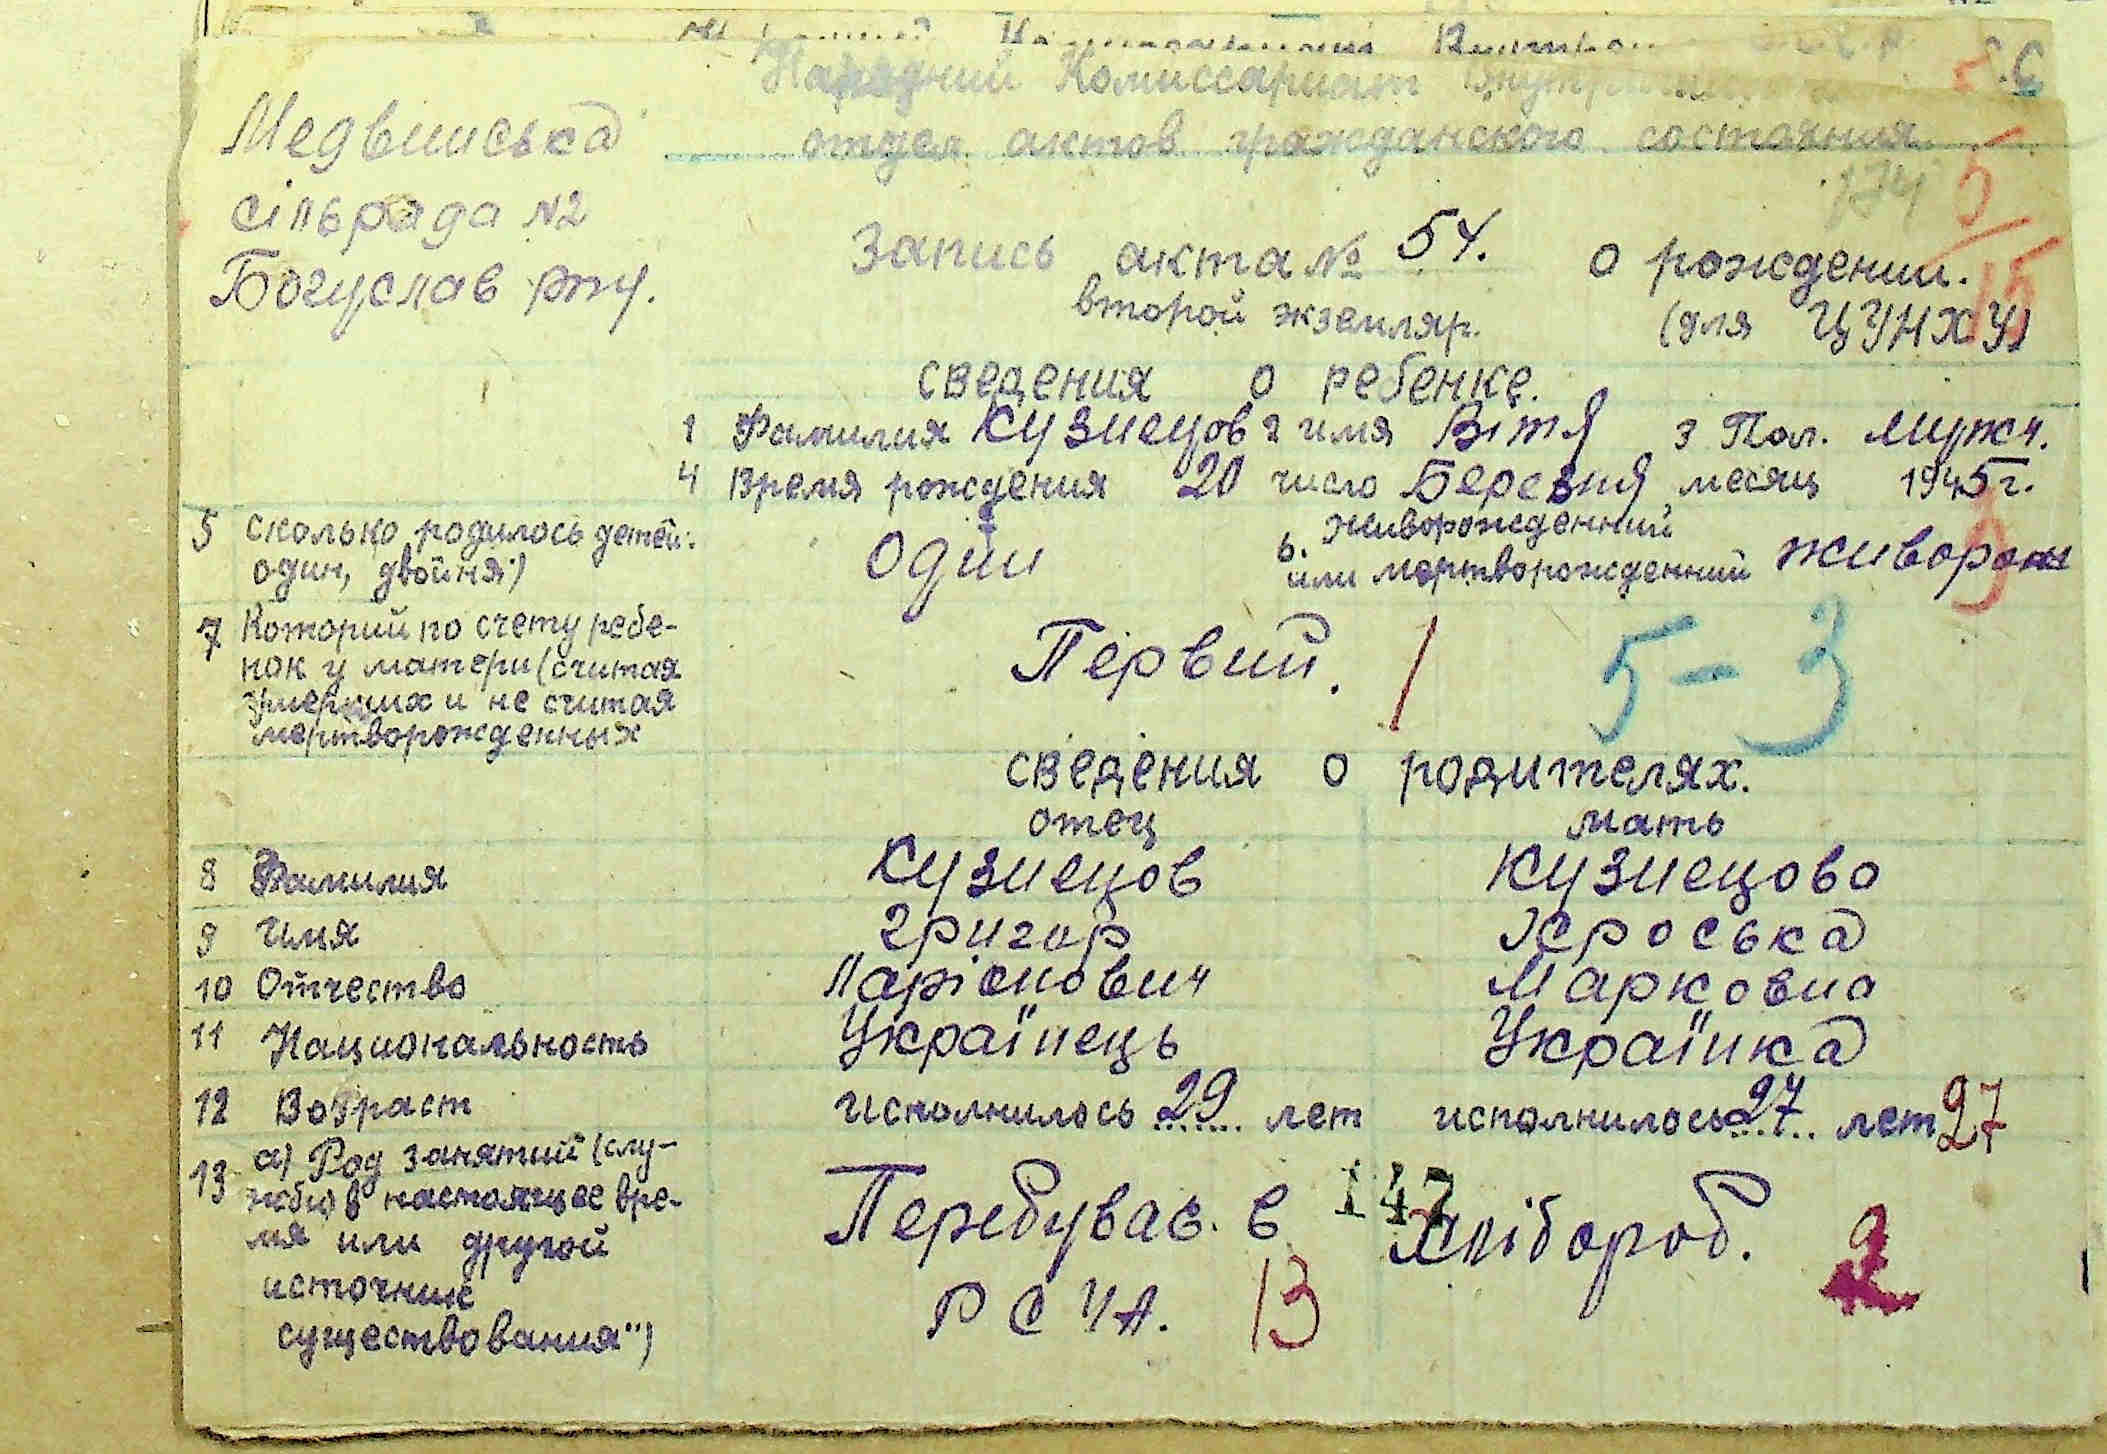 Народний Комиссариат
Медвинська
отдел актов гражданского состояния
сільрада №2
174
5
15
Запись акта № 54. о рождении.
Богуслав рту.
второй экземляр. (для ЦУНХУ)
сведения о ребенке.
1 Фамилия Кузнецов 2 имя Вітя 3 Пол. мужч.
4 Время рождения 20 число Березня месяц 1945 г.
5 сколько родилось детей. один, двойня) Один 6. живорожденний или мертворожденний живорож
7 Которий по счету ребе-
нок у матери (считая
умерших и не считая
мертворожденных
Первий. 1 5-3
сведения о родителях.
отец мать
8 Фамилия Кузнецов Кузнецово
9 имя Григор Яроська
10 Отчество Ларіонович Марковна
11 Национальность Українець Українка
12 Возраст исполнилось 29 лет исполнилось 27 лет 27
13 а) Род занятий (слу-
жбы в настоящее вре-
мя или другой
источник
существования")
Перебуває. в 147 Хлібороб. 2
РСЧА. 13